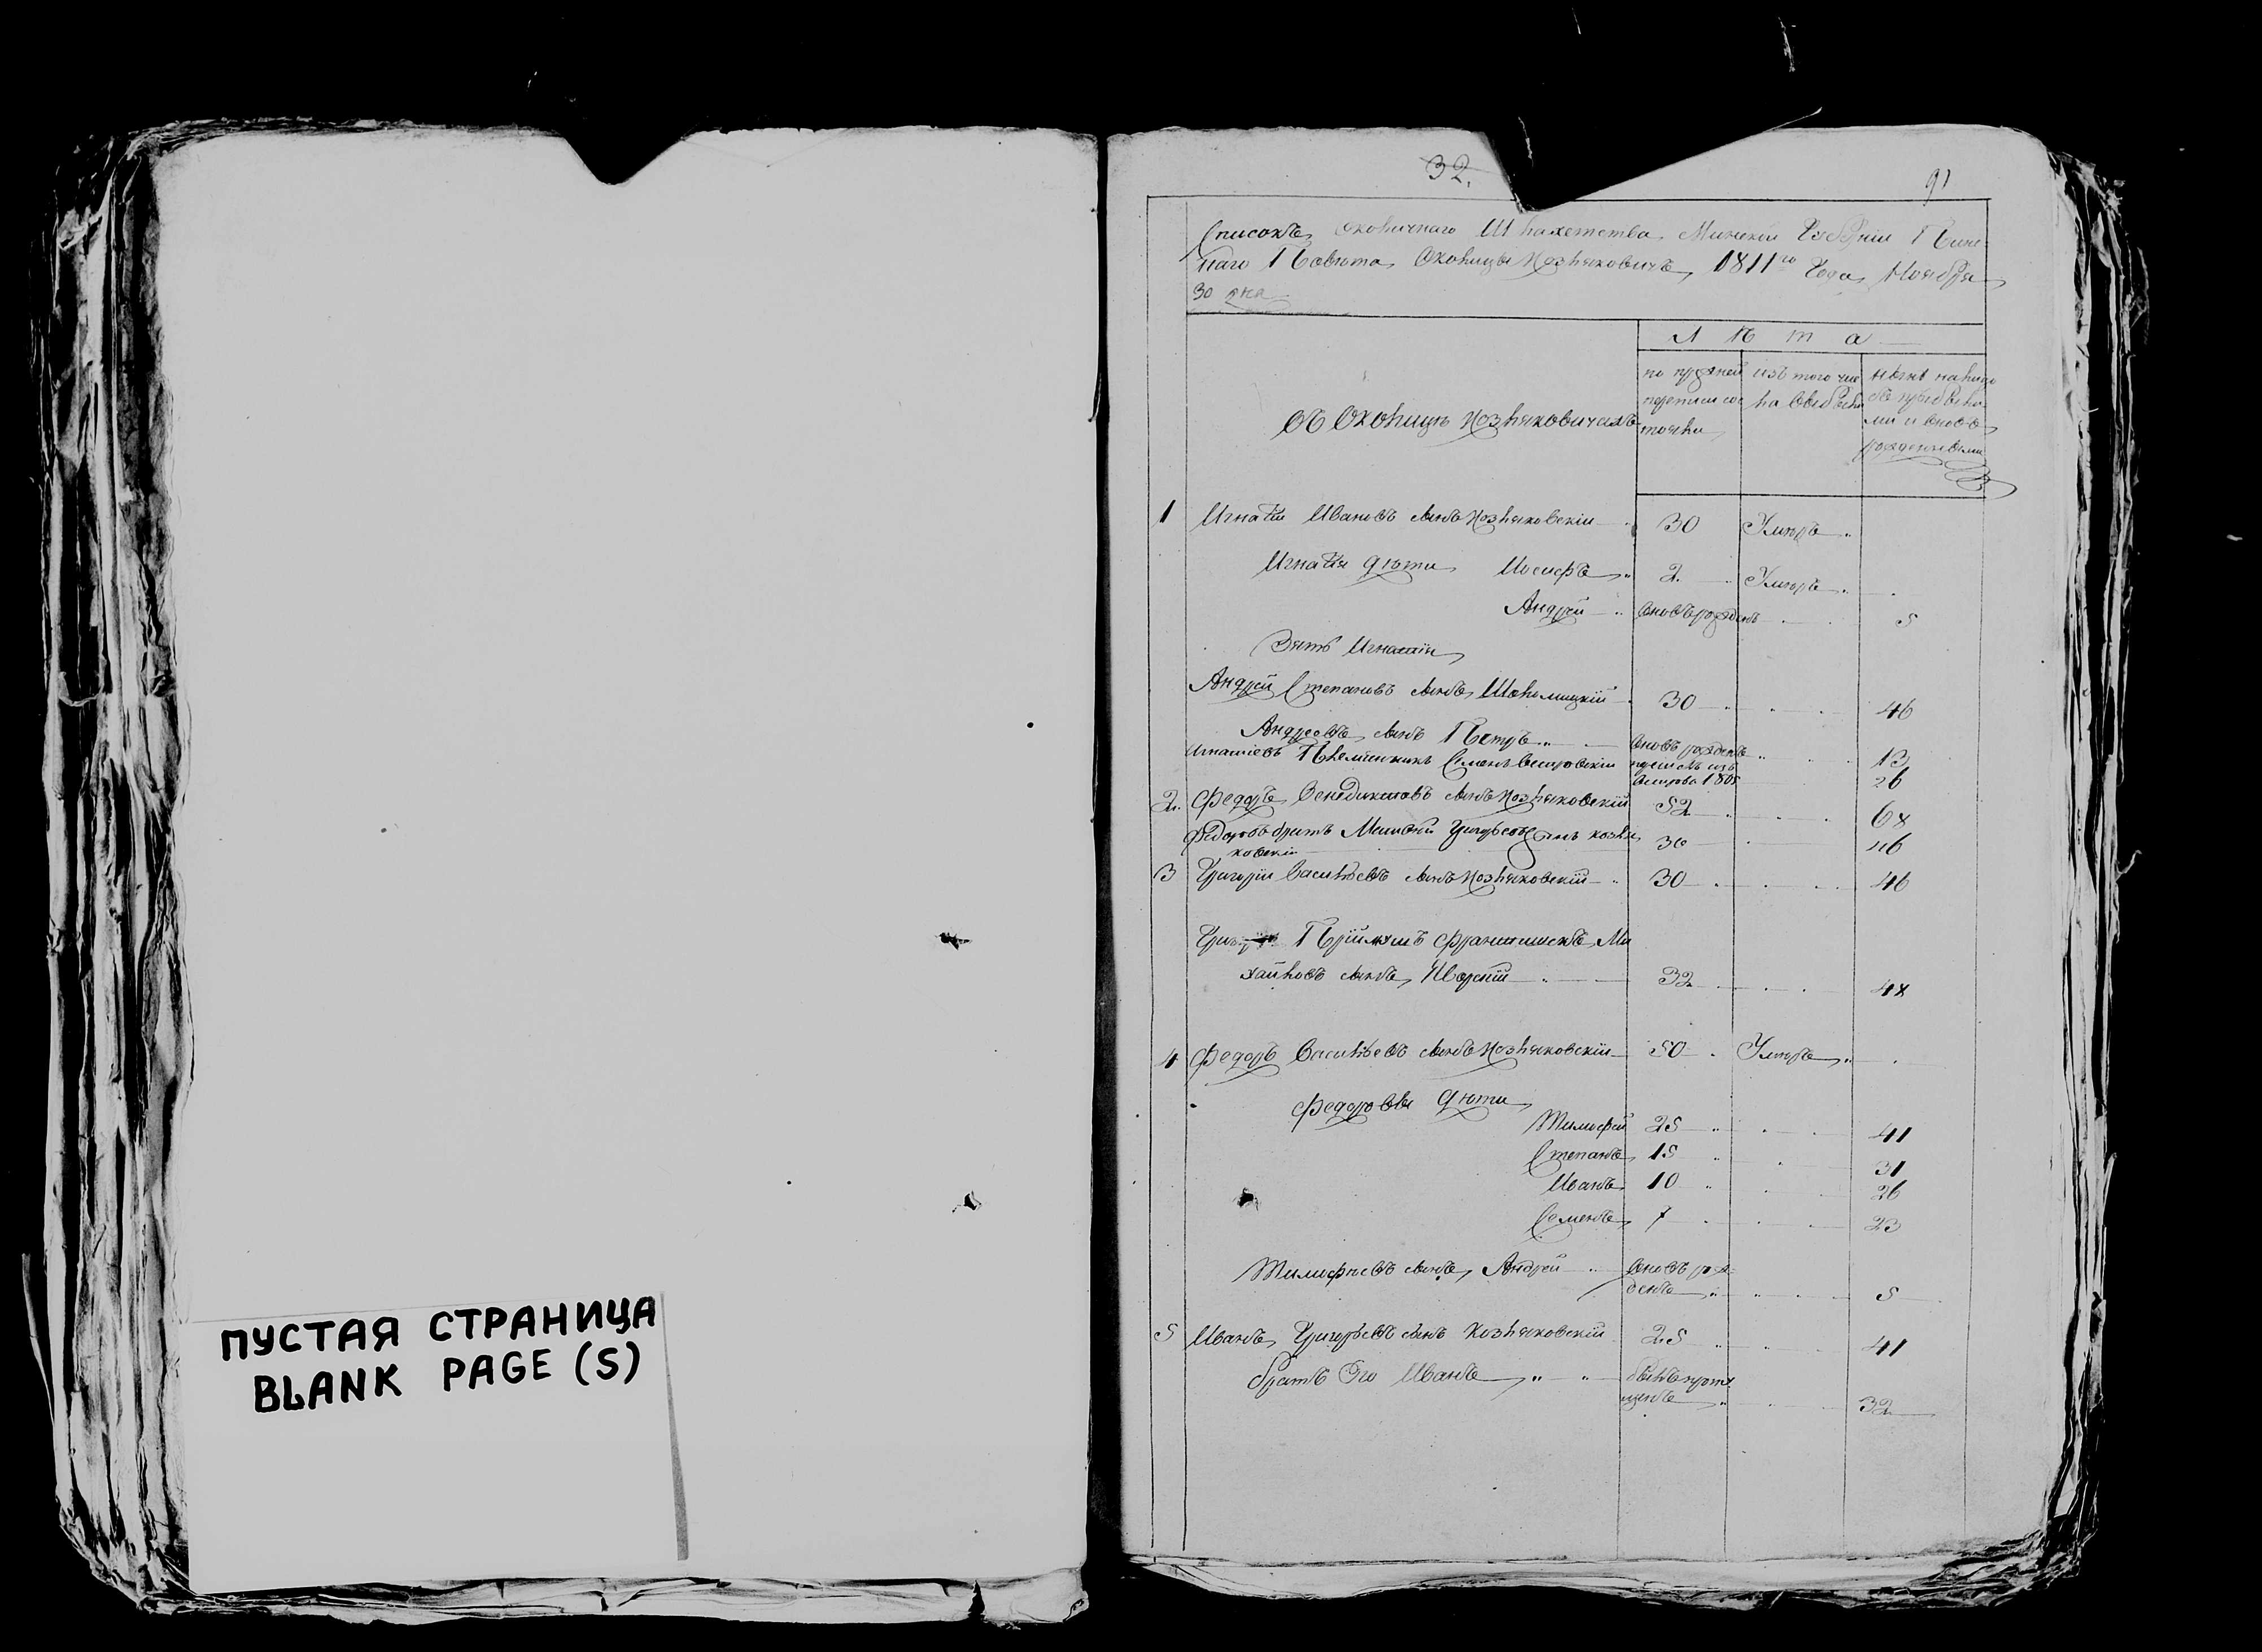 ПУСТАЯ СТРАНИЦА
BLANK PAGE (S)
32.
91
Списокъ околичнаго Шляхетства Минской Губерніи Пинс
каго Повѣта Околицы Козляковичъ 1811го Года Ноября
30 дня
Лѣта
по прежней
переписи сос
тояли
изъ того чис
ла выбыли
нынѣ на лицо
съ прибылы
ми и вновь
рожденными
Въ Околицѣ Козляковичахъ
1 Игнатій Ивановъ сынъ Козляковскій 30 Умеръ
Игнатія дѣти Иосифъ 2 Умеръ
Андрей вновь рожденъ 5
Зять Игнатія
Андрей Степановъ сынъ 30 46
Андреевъ сынъ Петръ вновь рожденъ 13
Игнатіевъ Племянникъ Семенъ 1805 26
2. Федоръ Венедиктовъ сынъ Козляковскій 52 68
Федоровъ братъ Матвей Григорьевъ сынъ Козля
ковскій 30 46
3 Григорій Васильевъ сынъ Козляковскій 30 46
Пріймышъ Францишекъ Ми
хайловъ сынъ 32 48
4 Федоръ Васильевъ сынъ Козляковскій 50 Умеръ
Федоровы дѣти
Тимофей 25 41
Степанъ 15 31
Иванъ 10 26
Семенъ 7 23
Тимофѣевъ сынъ Андрей вновь рож
денъ 5
5 Иванъ Григорьевъ сынъ Козляковскій 25 41
братъ Его Иванъ былъ пропу
щенъ 32